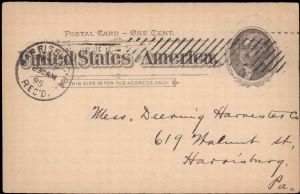 POSTAL CARD - ONE CENT.
United States of America.
THIS SIDE IS FOR THE ADDRESS ONLY.
95
REC'D.
Mess. Deering Harvester Co
619 Walnut St,
Harrisburg
Pa.